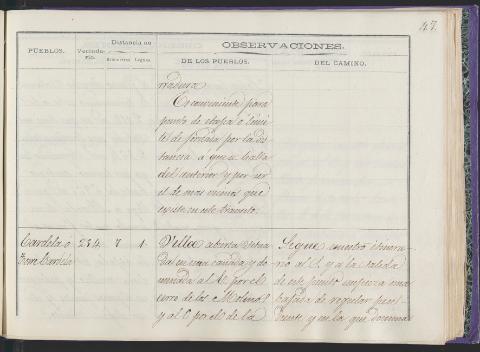 47.
PUEBLOS.
Vecindario.
Distancia en
Kilómetros
Leguas
OBSERVACIONES.
DE LOS PUEBLOS.
DEL CAMINO.
Es conveniente para
punto de etapa o limi-
te de jornada por la dis-
tancia a que se halla
del anterior y por ser
el de mas vecinos que
existe en este transito.
Cardela o
Torre Cardela
234
7
1
Villa abierta situa-
da en una cañada y do-
minada al N. por el
cerro de los Molinos
y al O por el de la
Sigue nuestro itinera-
rio al S. y a la salida
de este punto empieza una
bajada de regular pen-
diente, y en la que domina